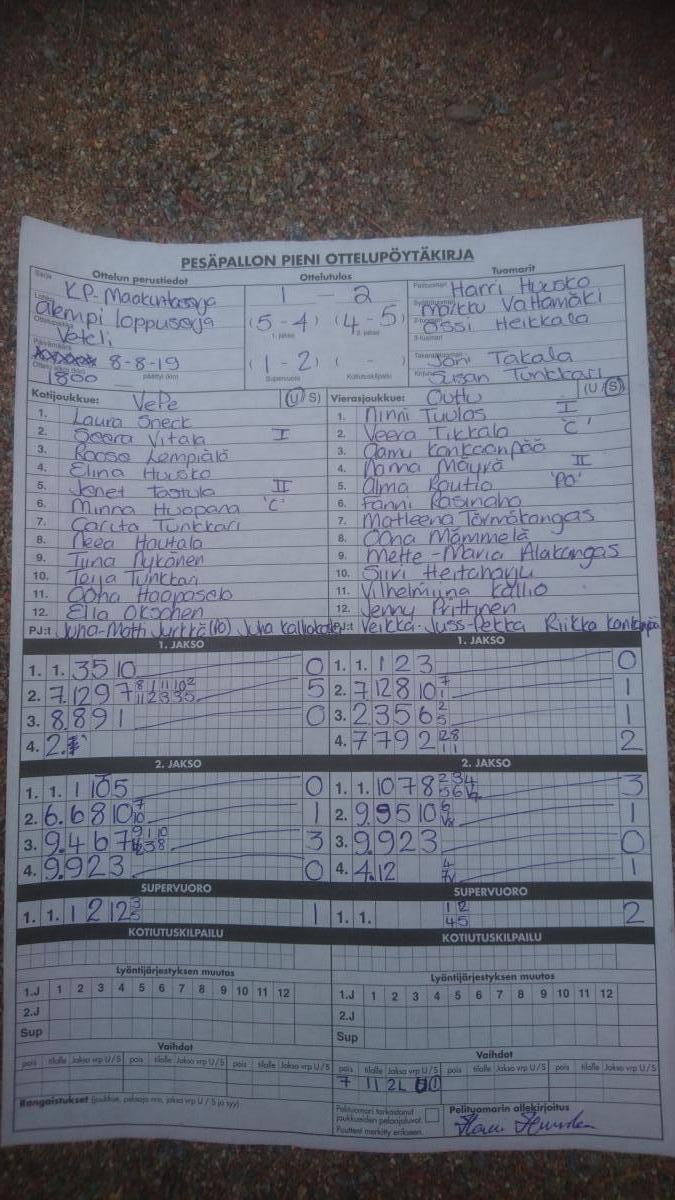 PESÄPALLON PIENI OTTELUPÖYTÄKIRJA
Ottelun perustiedot Ottelutulos Tuomarit
KP-Maakuntasarja 1 - 2 Harri Huusko
alempi loppusarja (5-4) (4-5) Markku Vattamäki
1. jakso 2. jakso
Veteli Ossi Heikkala
8-8-19 (1-2) ( - ) Joni Takala
Supervuoro Kotiutuskilpailu
1800 Susan Tunkkari
Kotijoukkue: VePe (U/S) Vierasjoukkue: Outlu (U/S)
1. Laura Sneck 1. Minni Tuulos I
2. Seera Vitala I 2. Veera Tikkala 'C'
3. Roosa Lempiälä 3. Aamu Kankaanpää
4. Elina Huusko 4. Noma Mäyrä II
5. Jenet Tastula II 5. Alma Routio 'PO'
6. Minna Huopana 'C' 6. Fanni Rasinaho
7. Carita Tunkkari 7. Matleena Törmäkangas
8. Neea Hautala 8. Oona Mämmelä
9. Tiina Nykänen 9. Mette-Maria Alakangas
10. Teija Tunkkari 10. Siiri Heitaharju
11. Oona Haapasalo 11. Vilhelmiina Kallio
12. Ella Oksanen 12. Jenny Prittynen
PJ:t Juha-Matti Jurkka (PO) Juha Kalliokoski PJ:t Veikka-Juss-Pekka Riikka Kankaanpää
1. JAKSO 1. JAKSO
1. 1. 3 5 10 0 1. 1. 1 2 3 0
2. 7. 12 9 7 5 2. 7 12 8 10 1
3. 8. 8 9 1 0 3. 2 3 5 6 1
4. 2. 4. 7 7 9 2 2
2. JAKSO 2. JAKSO
1. 1. 1 10 5 0 1. 1. 10 7 8 3
2. 6. 6 8 10 1 2. 9. 9 5 10 1
3. 9. 4 6 7 3 3. 9. 9 2 3 0
4. 9. 9 2 3 0 4. 4. 12 1
SUPERVUORO SUPERVUORO
1. 1. 1 2 12 1 1. 1. 2
KOTIUTUSKILPAILU KOTIUTUSKILPAILU
Lyöntijärjestyksen muutos Lyöntijärjestyksen muutos
1.J 1 2 3 4 5 6 7 8 9 10 11 12 1.J 1 2 3 4 5 6 7 8 9 10 11 12
2.J 2.J
Sup Sup
Vaihdot Vaihdot
pois tilalle Jakso vrp U/S pois tilalle Jakso vrp U/S pois tilalle Jakso vrp U/S pois tilalle Jakso vrp U/S pois tilalle Jakso vrp U/S pois tilalle Jakso vrp U/S
7 11 2L
Rangaistukset (joukkue, pelaaja nro, jakso vrp U / S ja syy)
Pelituomari tarkastanut joukkueiden pelaajaluvat. Pelituomarin allekirjoitus
Puutteet merkitty erikseen.